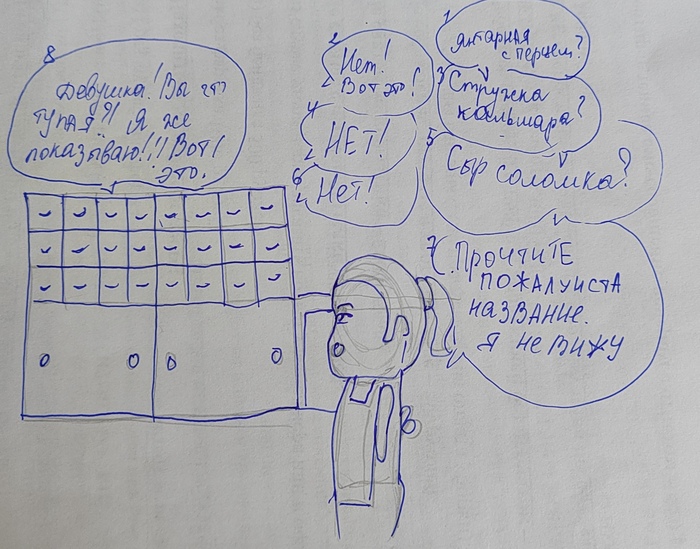 1
Янтарная
с перцем?
2
Нет!
Вот это!
3
Стружка
кальмара?
4
НЕТ!
5
Сыр соломка?
6
Нет!
7. Прочтите
пожалуиста
название.
Я не вижу
8
Девушка! Вы что
тупая?! Я же
показываю!!! Вот!
это.